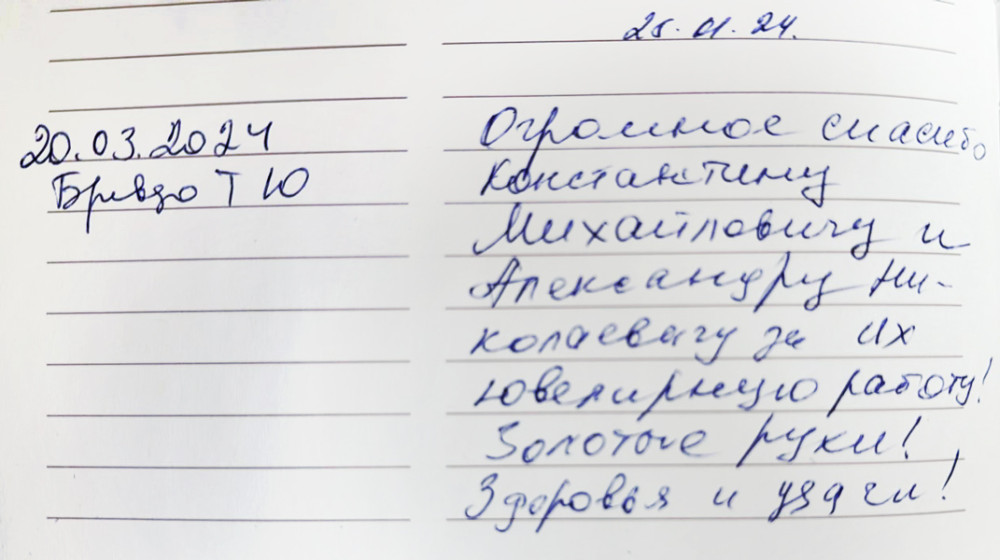 25.01.24.
20.03.2024
Бривдо Т Ю
Огромное спасибо
Константину
Михайловичу и
Александру Ни-
колаевичу за их
ювелирную работу!
Золотые руки!
Здоровья и удачи!